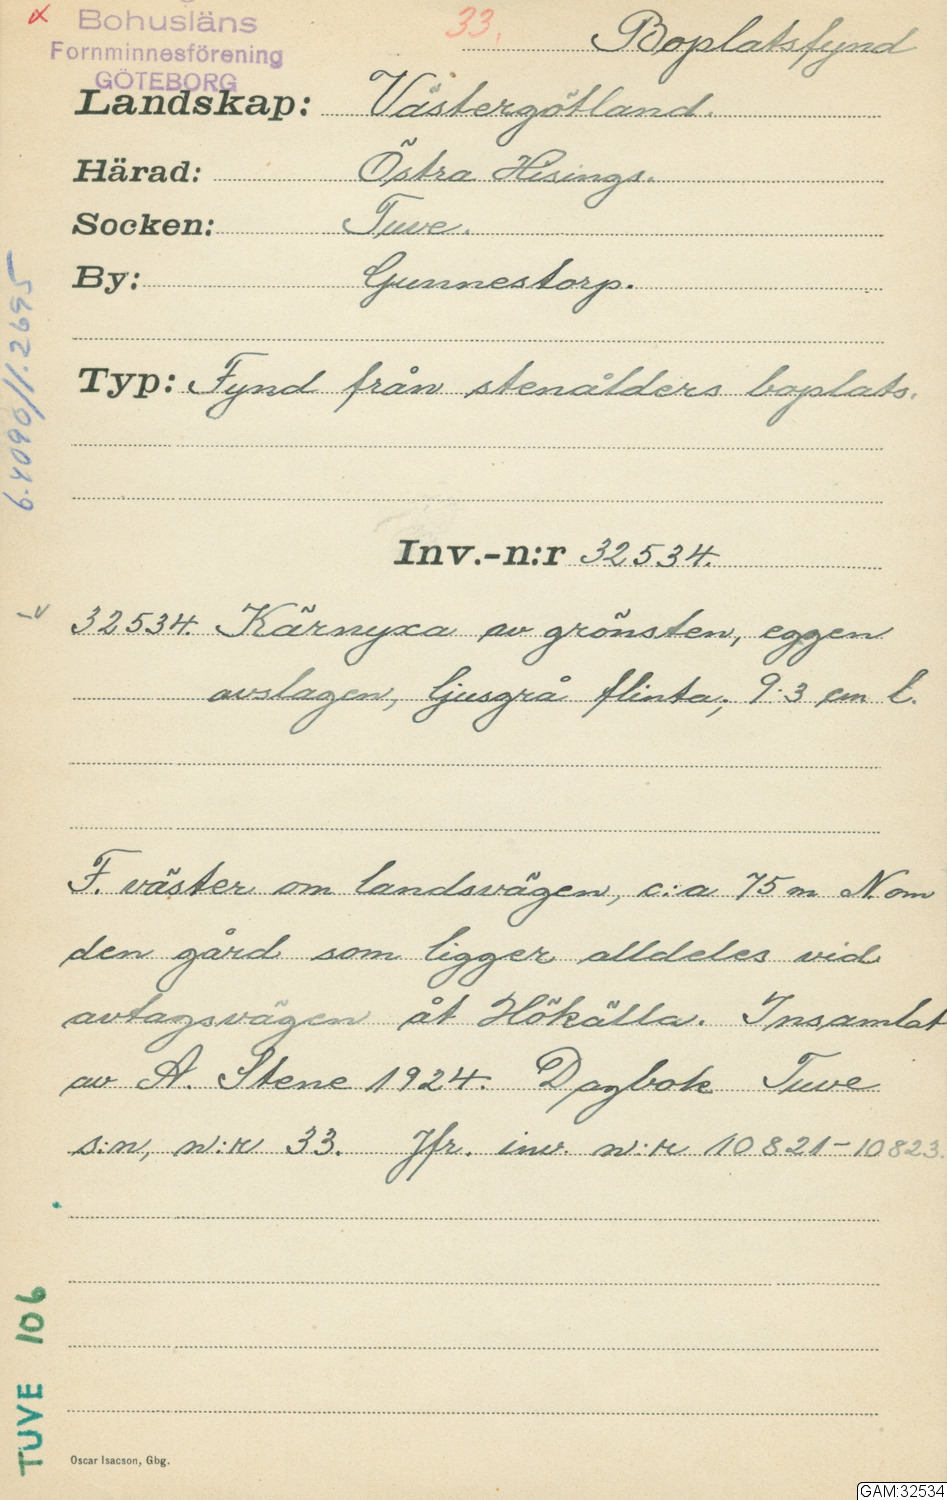 Bohusläns
Fornminnesförening
GÖTEBORG
33. Boplatsfynd
Landskap: Västergötland.
Härad: Östra Hisings.
Socken: Tuve.
By: Gunnestorp.
Typ: Fynd från stenålders boplats.
Inv.-n:r 32534.
32534. Kärnyxa av grönsten, eggen
avslagen, ljusgrå flinta; 9.3 cm l.
F. väster om landsvägen, c:a 75 m N. om
den gård som ligger alldeles vid
avtagsvägen åt Hökälla. Insamlat
av A. Stene 1924. Dagbok Tuve
s:n, n:r 33. Jfr. inv. n:r 10821-10823.
6.4090/1.2695
TUVE 106
Oscar Isacson, Gbg.
GAM:32534